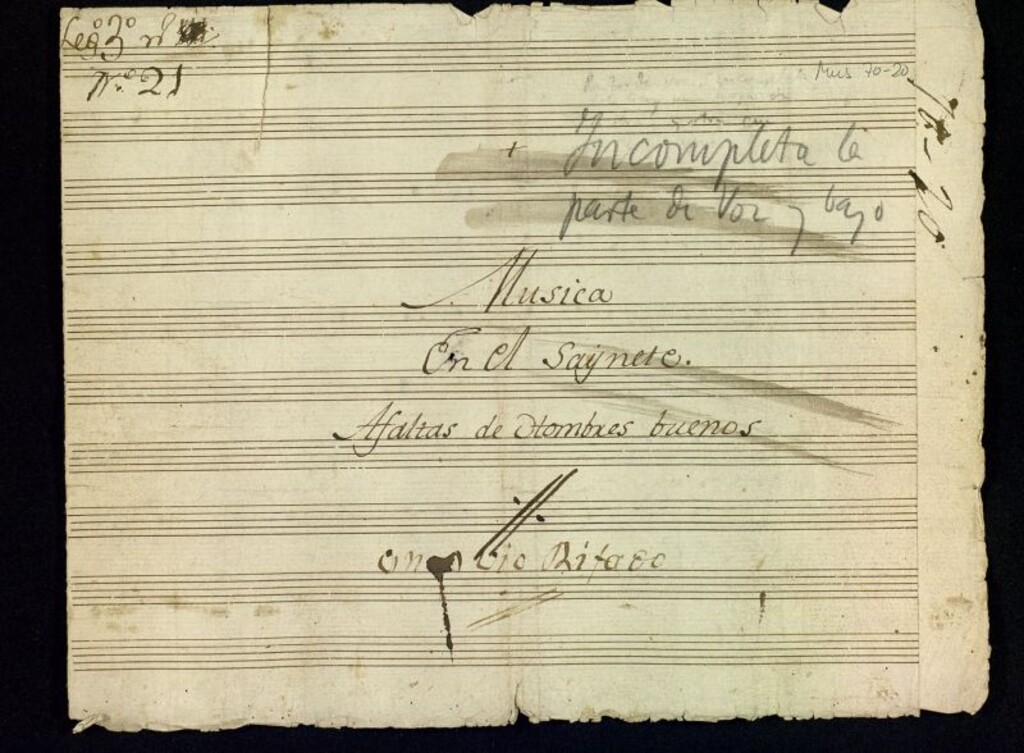 Leg.º 3.º n.º
N.º 21
Mus 70-20
70-20
+
Incompleta la
parte de Voz y bajo
Musica
En el Saÿnete.
Afaltas de Hombres buenos